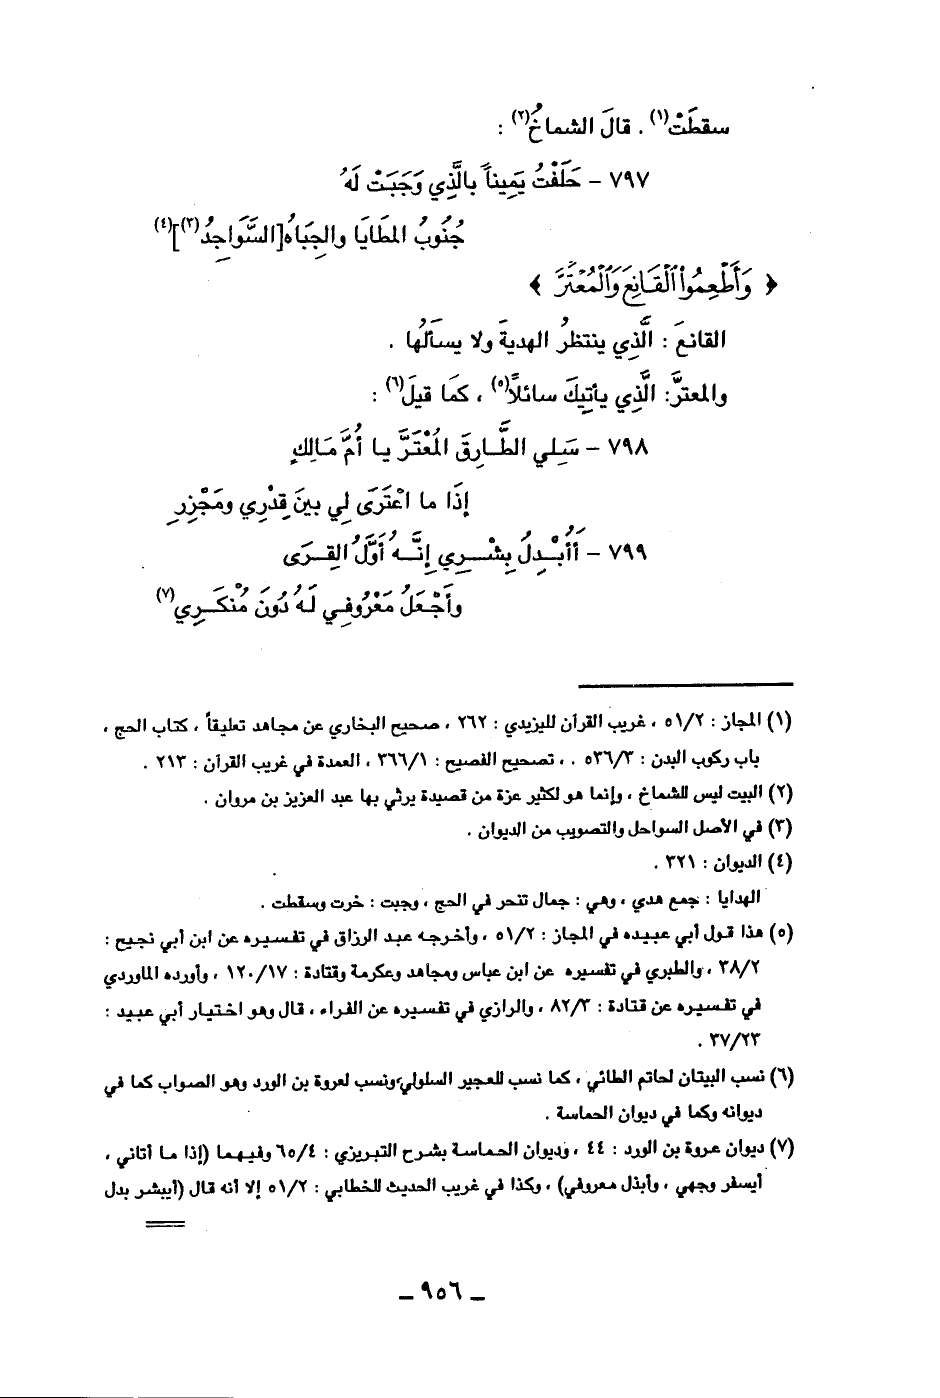 سقطَتْ(١) . قالَ الشماخُ(٢) :
٧٩٧ – حَلَفْتُ يَمِيناً بالَّذِي وَجَبَتْ لَهُ
جُنوبُ المَطَايَا والجِبَاهُ[السَّوَاجِدُ(٣)](٤)
﴿ وَأَطْعِمُوا۟ ٱلْقَانِعَ وَٱلْمُعْتَرَّ ﴾
القانعَ : الَّذِي ينتظرُ الهديةَ ولا يسألُها .
والمعترَّ: الَّذِي يأتِيكَ سائلاً(٥) ، كمَا قيلَ(٦) :
٧٩٨ – سَلِي الطَّارِقَ المُعْتَرَّ يا أُمَّ مَالِكٍ
إذَا ما اعْتَرَى لِي بينَ قِدْرِي ومَجْزِرِ
٧٩٩ – أَأُبْدِلُ بِشْرِي إِنَّهُ أَوَّلُ القِرَى
وأَجْعَلُ مَعْرُوفِي لَهُ دُونَ مُنْكَرِي(٧)
(١) المجاز : ٥١/٢ ، غريب القرآن لليزيدي : ٢٦٢ ، صحيح البخاري عن مجاهد تعليقاً ، كتاب الحج ،
باب ركوب البدن : ٥٣٦/٣ . ، تصحيح الفصيح : ٣٦٦/١ ، العمدة في غريب القرآن : ٢١٣ .
(٢) البيت ليس للشماخ ، وإنما هو لكثير عزة من قصيدة يرثي بها عبد العزيز بن مروان .
(٣) في الأصل السواحل والتصويب من الديوان .
(٤) الديوان : ٣٢١ .
الهدايا : جمع هدي ، وهي : جمال تنحر في الحج ، وجبت : خرت وسقطت .
(٥) هذا قول أبي عبيده في المجاز : ٥١/٢ ، وأخرجه عبد الرزاق في تفسيره عن ابن أبي نجيح :
٣٨/٢ ، والطبري في تفسيره عن ابن عباس ومجاهد وعكرمة وقتادة : ١٢٠/١٧ ، وأورده الماوردي
في تفسيره عن قتادة : ٨٢/٣ ، والرازي في تفسيره عن الفراء ، قال وهو اختيار أبي عبيد :
٣٧/٢٣ .
(٦) نسب البيتان لحاتم الطائي ، كما نسب للعجير السلولي، ونسب لعروة بن الورد وهو الصواب كما في
ديوانه وكما في ديوان الحماسة .
(٧) ديوان عروة بن الورد : ٤٤ ، وديوان الحماسة بشرح التبريزي : ٦٥/٤ وفيهما (إذا ما أتاني ،
أيسفر وجهي ، وأبذل معروفي) ، وكذا في غريب الحديث للخطابي : ٥١/٢ إلا أنه قال (أيبشر بدل
– ٩٥٦ –